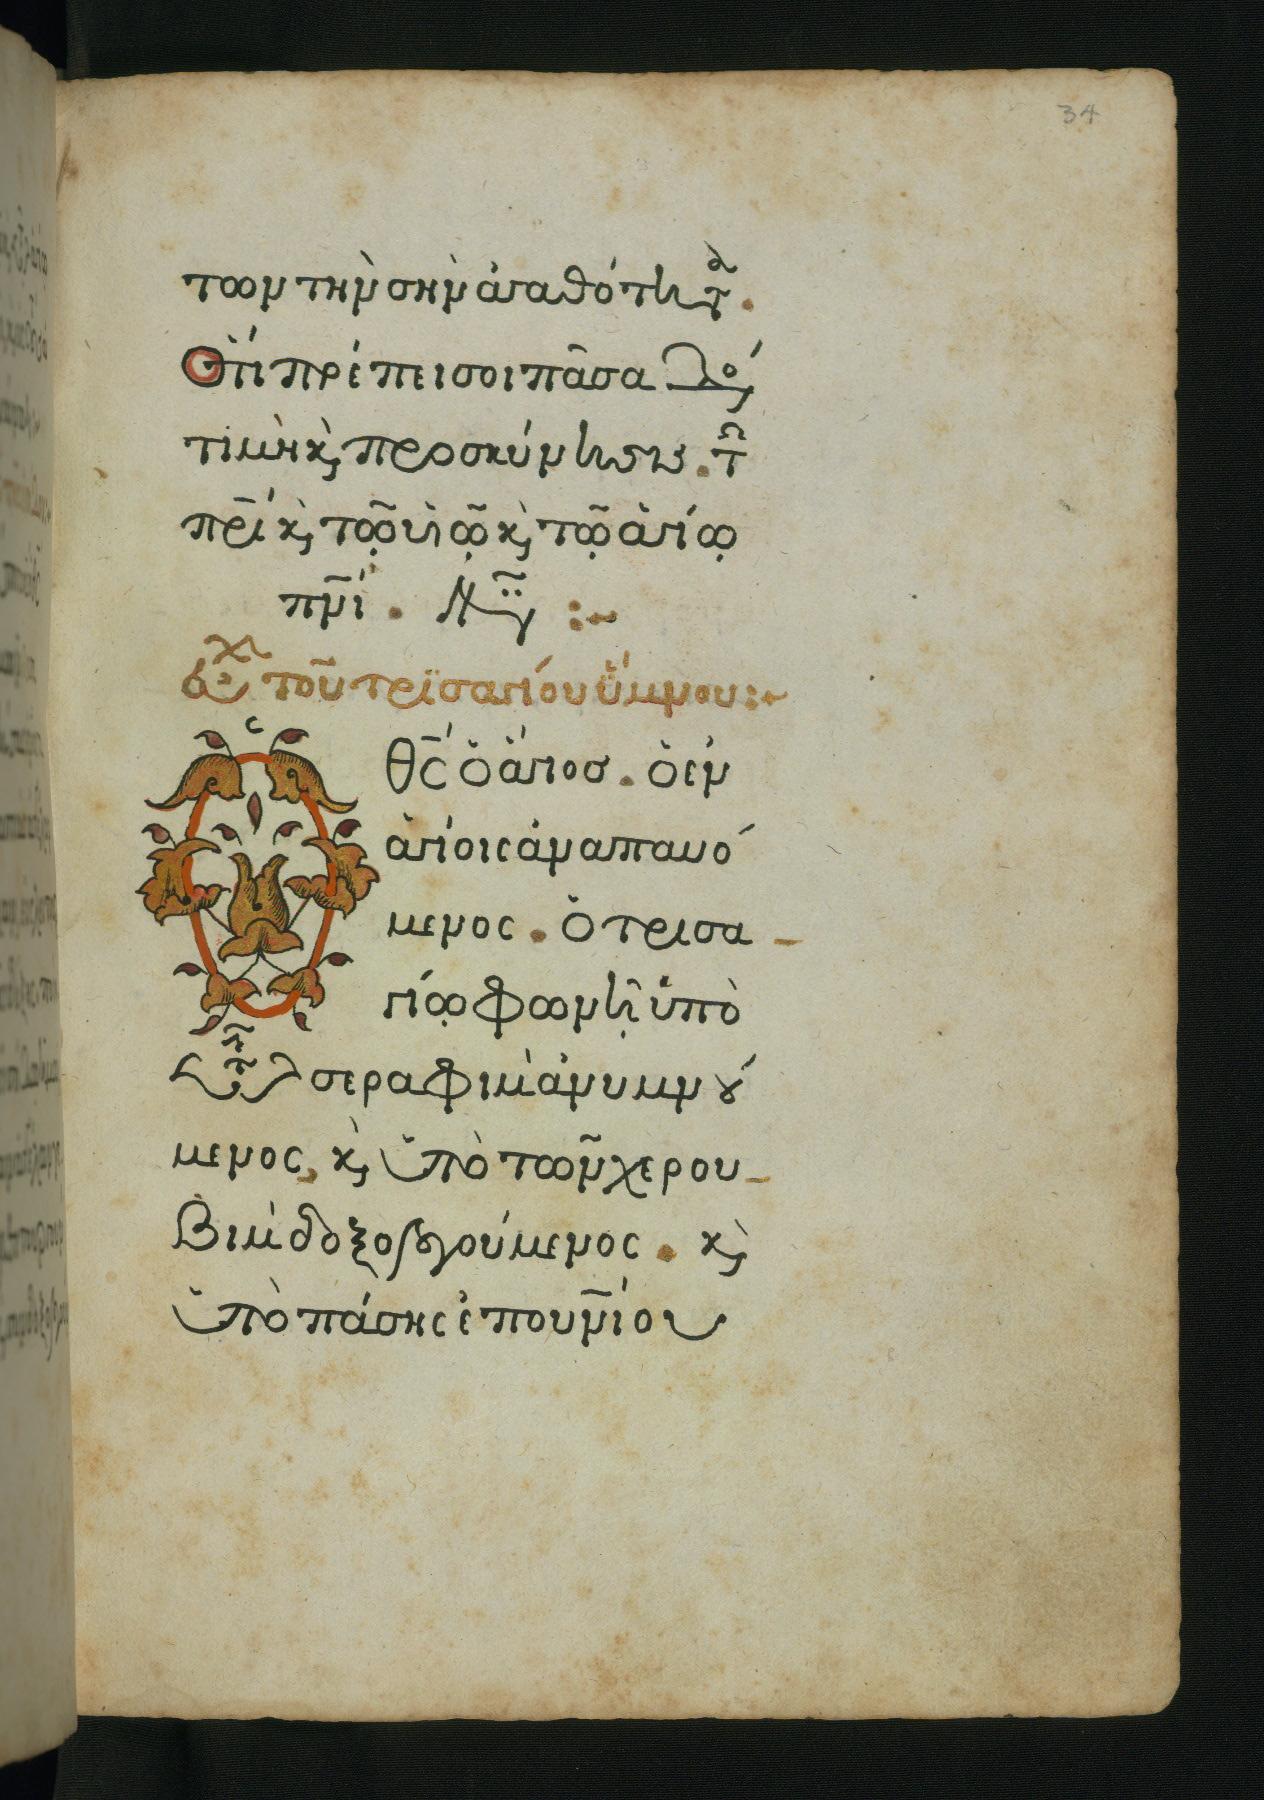 34
των τὴν σὴν ἀγαθότητα.
Ὅτι πρέπει σοι πᾶσα δόξα
τιμὴ κ̀ προσκύνησις. τῶ
πρ̅ί κ̀ τῷ υἱῷ κ̀ τῷ ἁγίῳ
πν̅ι. Νῦν :~
εὐχ τοῦ τρισαγίου ὕμνου :~
Ὁ θ̅ς ὁ ἅγιος. ὁ ἐν
ἁγίοις ἀναπαυό
μενος. ὁ τρισα-
γίῳ φωνῇ ὑπὸ
τῶν σεραφὶμ ἀνυμνού
μενος, κ̀ ὑπὸ τῶν χερου-
βὶμ δοξολογούμενος. κ̀
ὑπὸ πάσης ἐπουν̅ίου